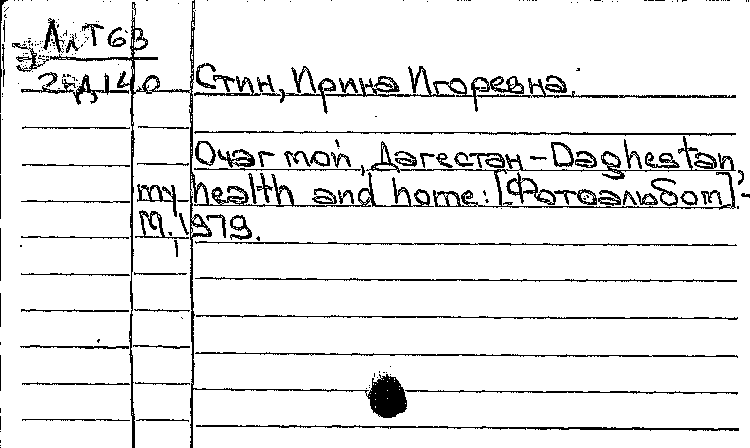 АлТ63
Э
2-Д140
Стин, Ирина Игоревна.
Очаг мой, Дагестан - Daghestan,
my health and home: [Фотоальбом].-
М., 1979.